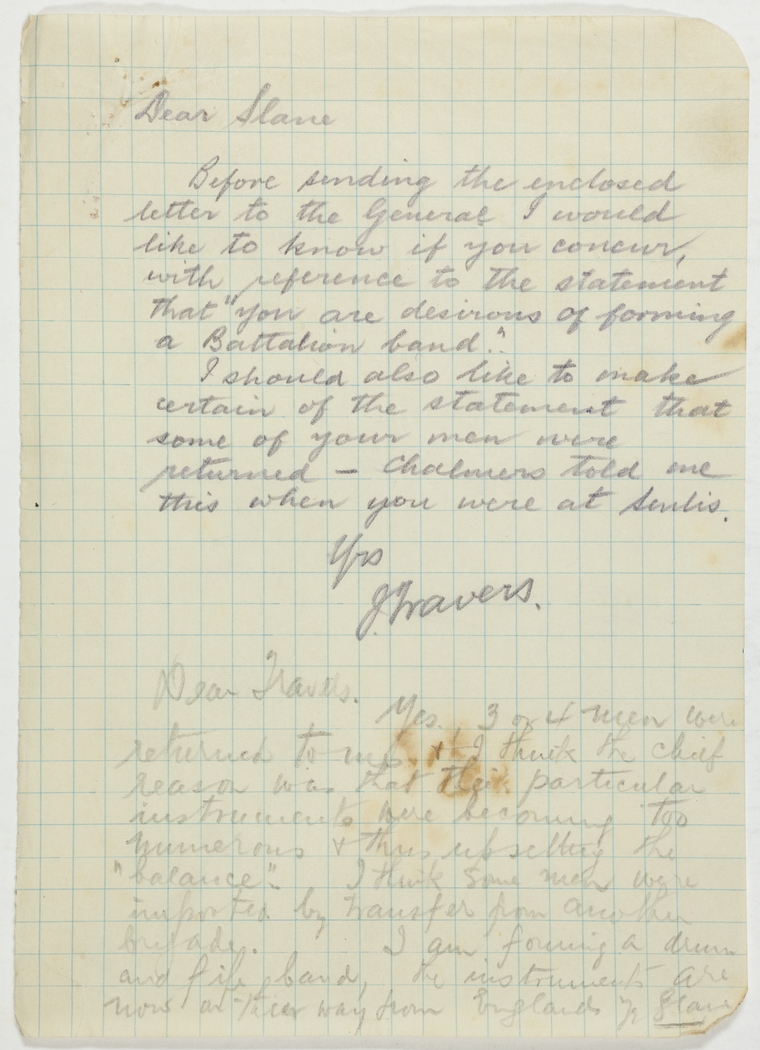 Dear Slane
Before sending the enclosed
letter to the General I would
like to know if you concur,
with reference to the statement
that "you are desirous of forming
a Battalion band".
I should also like to make
certain of the statement that
some of your men were
returned – Chalmers told me
this when you were at Senlis.
Yrs
J. Travers.
Dear Travers.
Yes. 3 or 4 men were
returned to me. & I think the chief
reason was that their particular
instruments were becoming too
numerous & thus upsetting the
"balance". I think some men were
imported by transfer from another
brigade. I am forming a drum
and fife band, the instruments are
now on their way from England Yr Slane